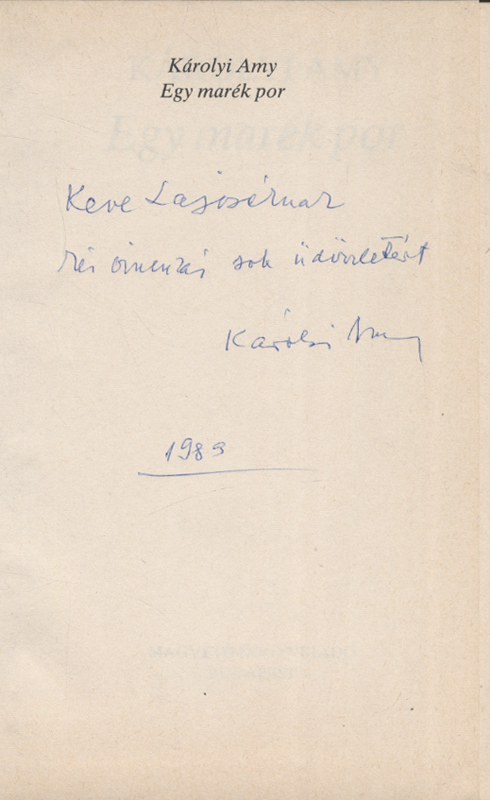 Károlyi Amy
Egy marék por
Keve Lajosérnar
sok üdvözletért
Károlyi Amy
1989